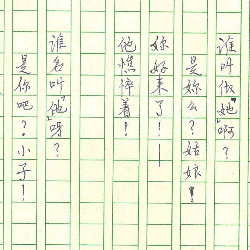 谁叫做「她」啊？
是妳么？姑娘！
妳好来了！—
他憔悴着！
谁名叫「他」呀？
是你吧？小子！